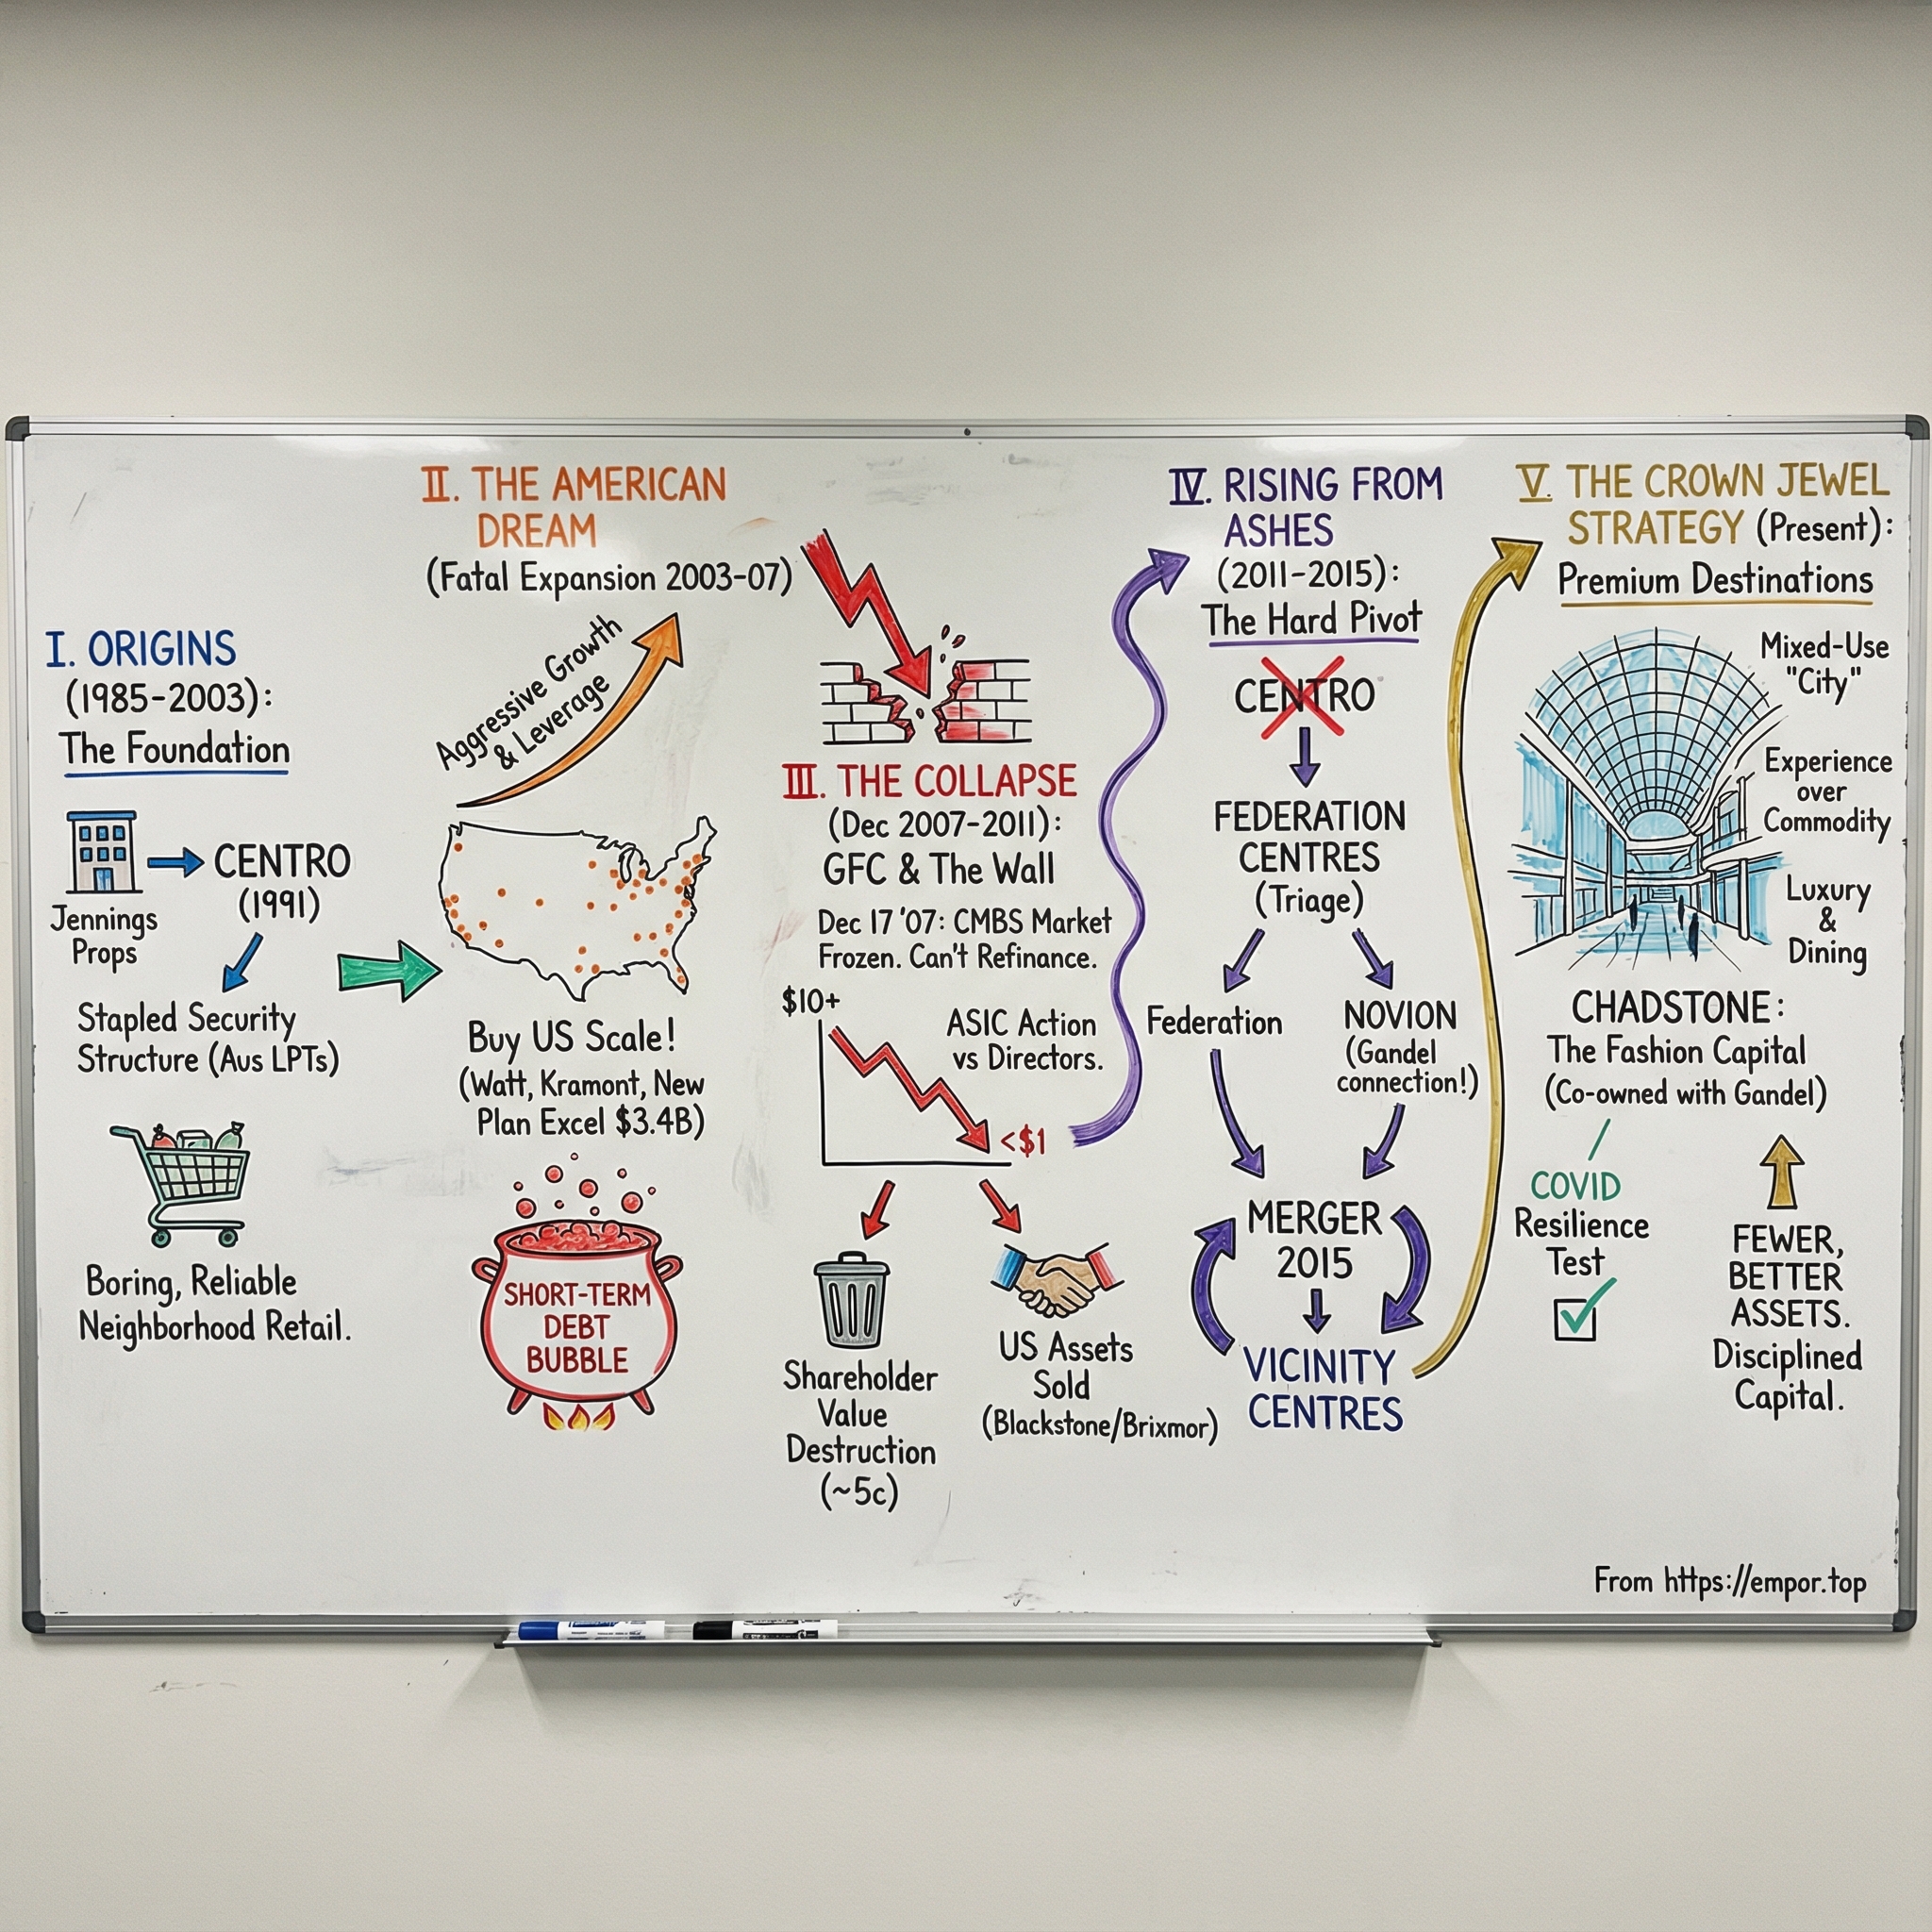 I. ORIGINS
(1985-2003):
The Foundation
Jennings
Props
CENTRO
(1991)
Stapled Security
Structure (Aus LPTs)
Boring, Reliable
Neighborhood Retail.
II. THE AMERICAN
DREAM
(Fatal Expansion 2003-07)
Aggressive Growth
& Leverage
Buy US Scale!
(Watt, Kramont, New
Plan Excel $3.4B)
SHORT-TERM
DEBT
BUBBLE
III. THE COLLAPSE
(Dec 2007-2011):
GFC & The Wall
Dec 17 '07: CMBS Market
Frozen. Can't Refinance.
$10+
ASIC Action
vs Directors.
<$1
Shareholder
Value
Destruction
(~5c)
US Assets
Sold
(Blackstone/Brixmor)
IV. RISING FROM
ASHES
(2011-2015):
The Hard Pivot
CENTRO
FEDERATION
CENTRES
(Triage)
Federation
NOVION
(Gandel
connection!)
MERGER
2015
VICINITY
CENTRES
V. THE CROWN JEWEL
STRATEGY (Present):
Premium Destinations
Mixed-Use
"City"
Experience
over
Commodity
Luxury
&
Dining
CHADSTONE:
The Fashion Capital
(Co-owned with Gandel)
COVID
Resilience
Test
FEWER,
BETTER
ASSETS.
Disciplined
Capital.
From https://empor.top